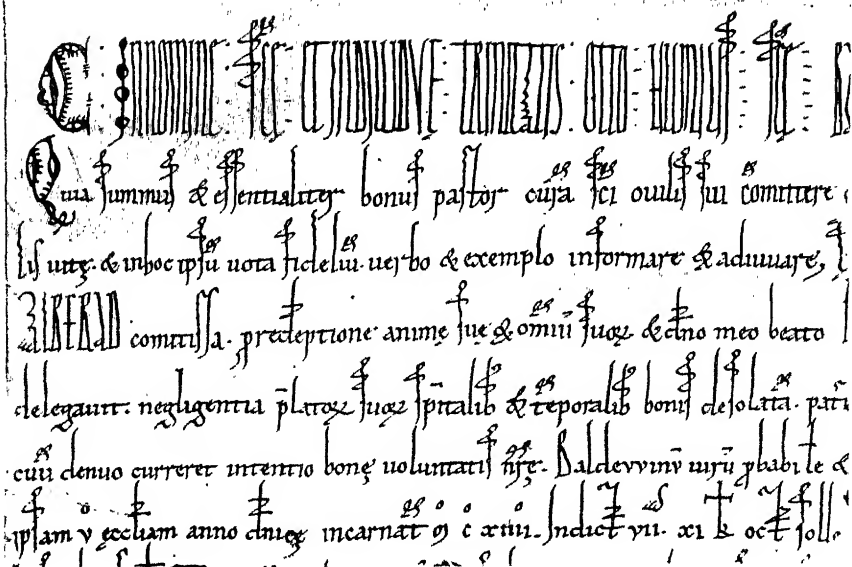 IN NOMINE SCE ET INDIVIDVE TRINITATIS
Quia summus & essentialiter bonus pastor cura sci ouilis sui cōmittere
lis uitę. & in hoc ipsū uota fideliū uerbo & exemplo informare & adiuuare,
comitissa. preceptione animę suę & omiū suoꝝ & dno meo beato
delegauit. negligentia p̄latoꝝ suoꝝ sp̄italib & tēporalib bonis desolata.
cuū denuo curreret intentio bonę uoluntatis nr̄ę. Baldevvinū uirū ꝓbabile &
ipsam v̊ ęccliam anno dnicę incarnat̄ ꝏ c̊ xiiii. Indict̄ vii. xi oct̄